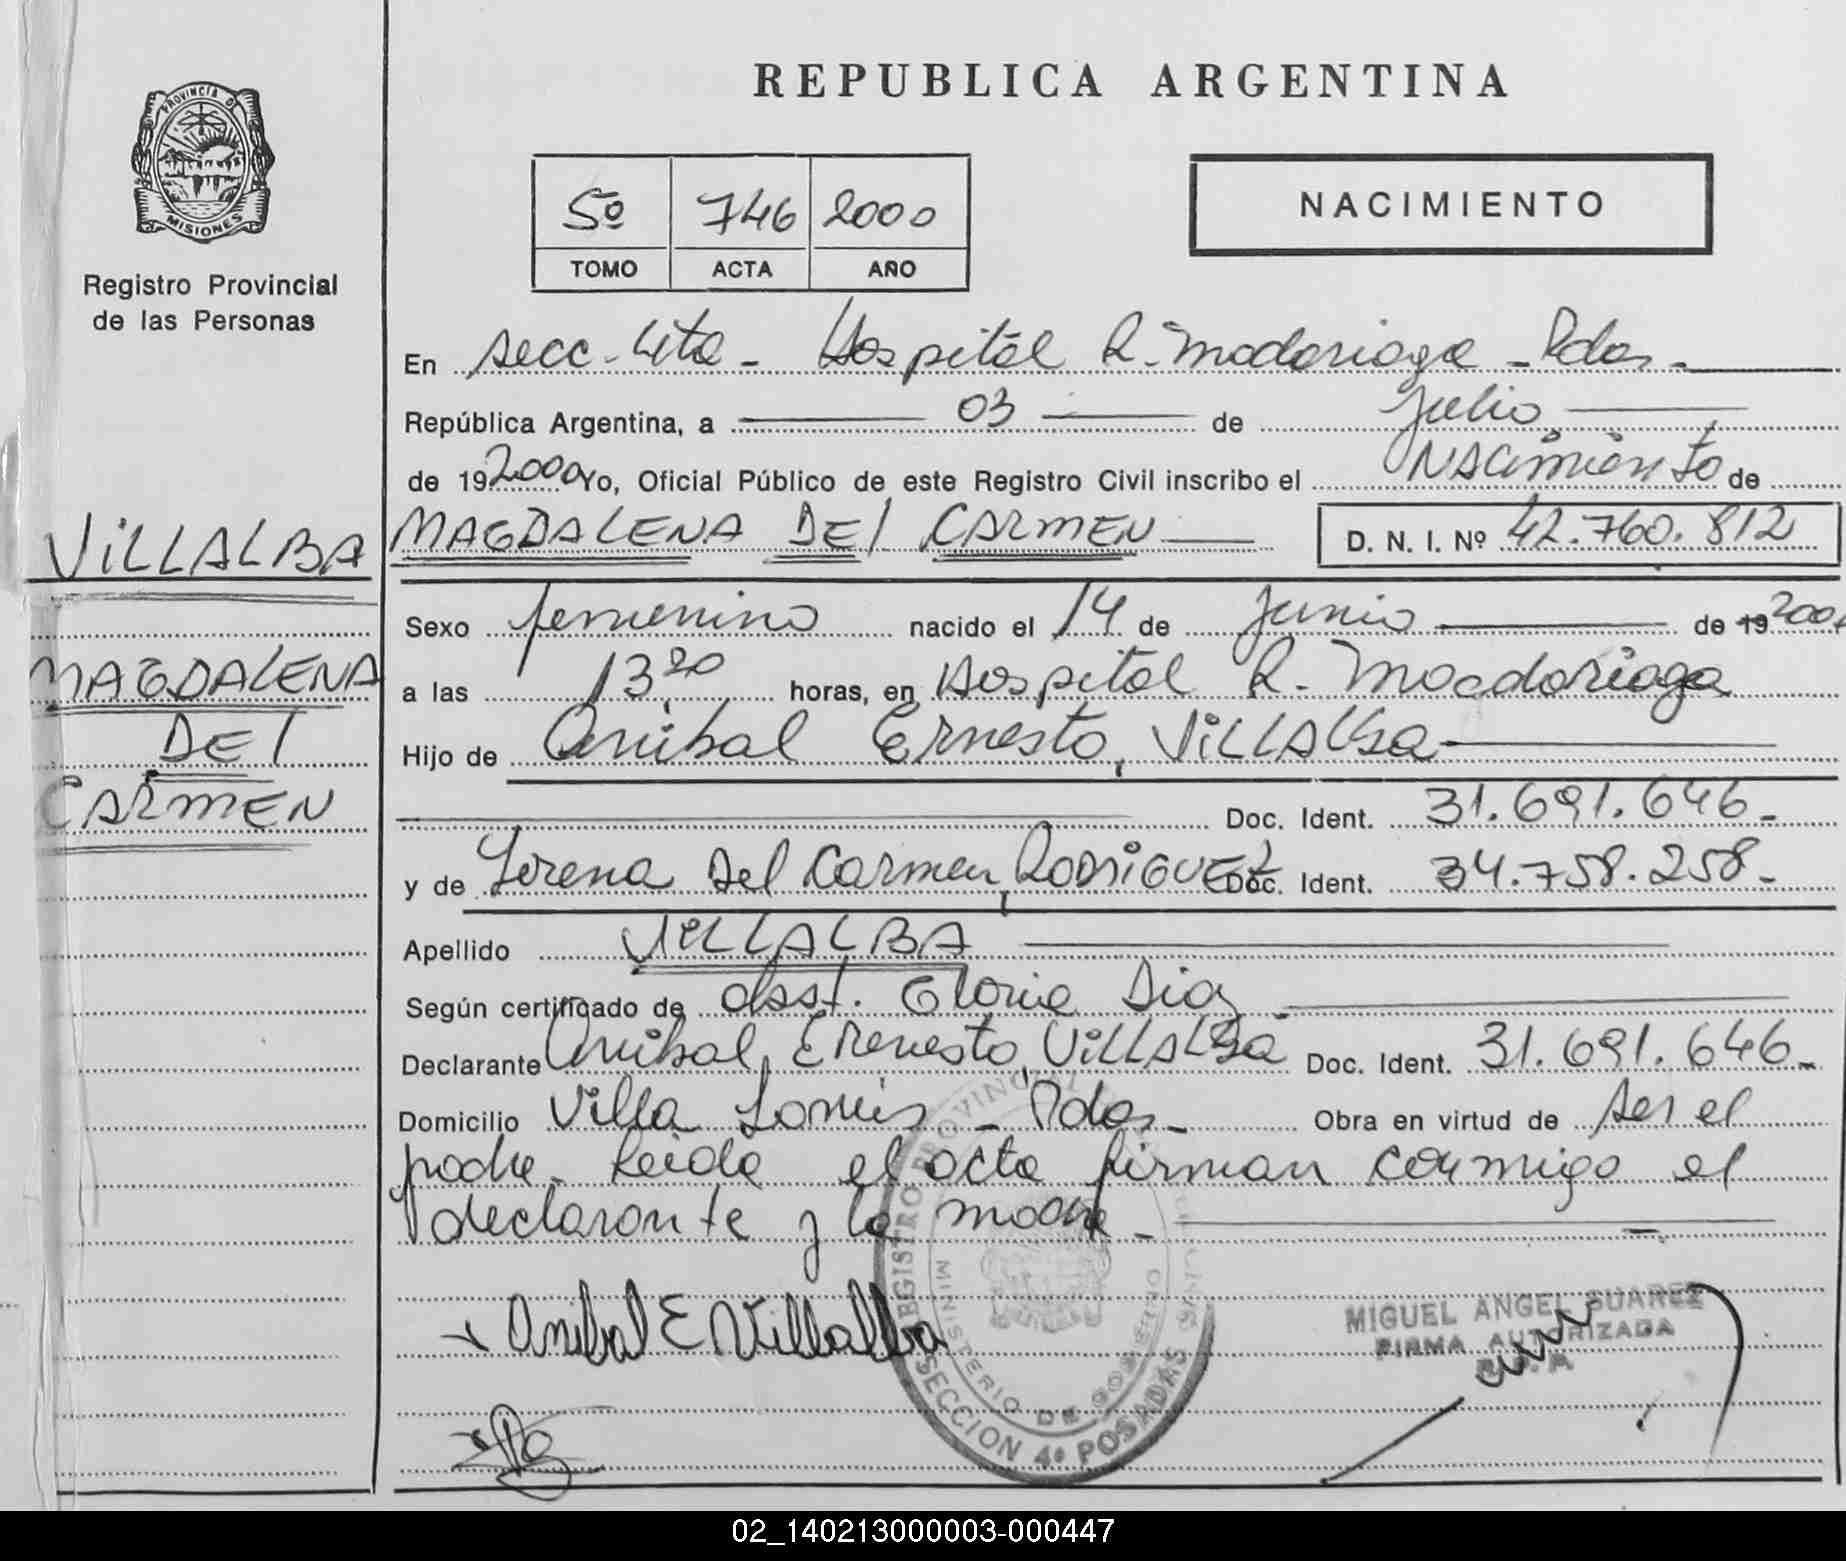 REPUBLICA ARGENTINA
PROVINCIA DE
MISIONES
Registro Provincial
de las Personas
5º 746 2000
TOMO ACTA AÑO
NACIMIENTO
En secc. 4ta - Hospital R. Madariaga - Pdas -
República Argentina, a 03 de Julio
de 19 2000 Yo, Oficial Público de este Registro Civil inscribo el Nacimiento de
MAGDALENA DEl CARMEN D. N. I. Nº 42.760.812
VILLALBA
MAGDALENA
DEl
CARMEN
Sexo femenino nacido el 14 de Junio de 19 2000
a las 13 20 horas, en Hospital R. Macdariaga
Hijo de Anibal Ernesto, VILLALba
Doc. Ident. 31.691.646-
y de Lorena Del Carmen, RODRIGUEZ Doc. Ident. 34.758.258-
Apellido VILLALBA
Según certificado de obst. Gloria Diaz
Declarante Anibal, Ernesto, VILLALBA Doc. Ident. 31.691.646-
Domicilio Villa - Pdas - Obra en virtud de ser el
padre. Leida el acta firman conmigo el
declarante y la madre -
Anibal E Villalba
REGISTRO PROVINCIAL
MINISTERIO DE GOBIERNO
SECCION 4ª POSADAS
MIGUEL ANGEL SUAREZ
FIRMA AUTORIZADA
R.P.P.
02_140213000003-000447